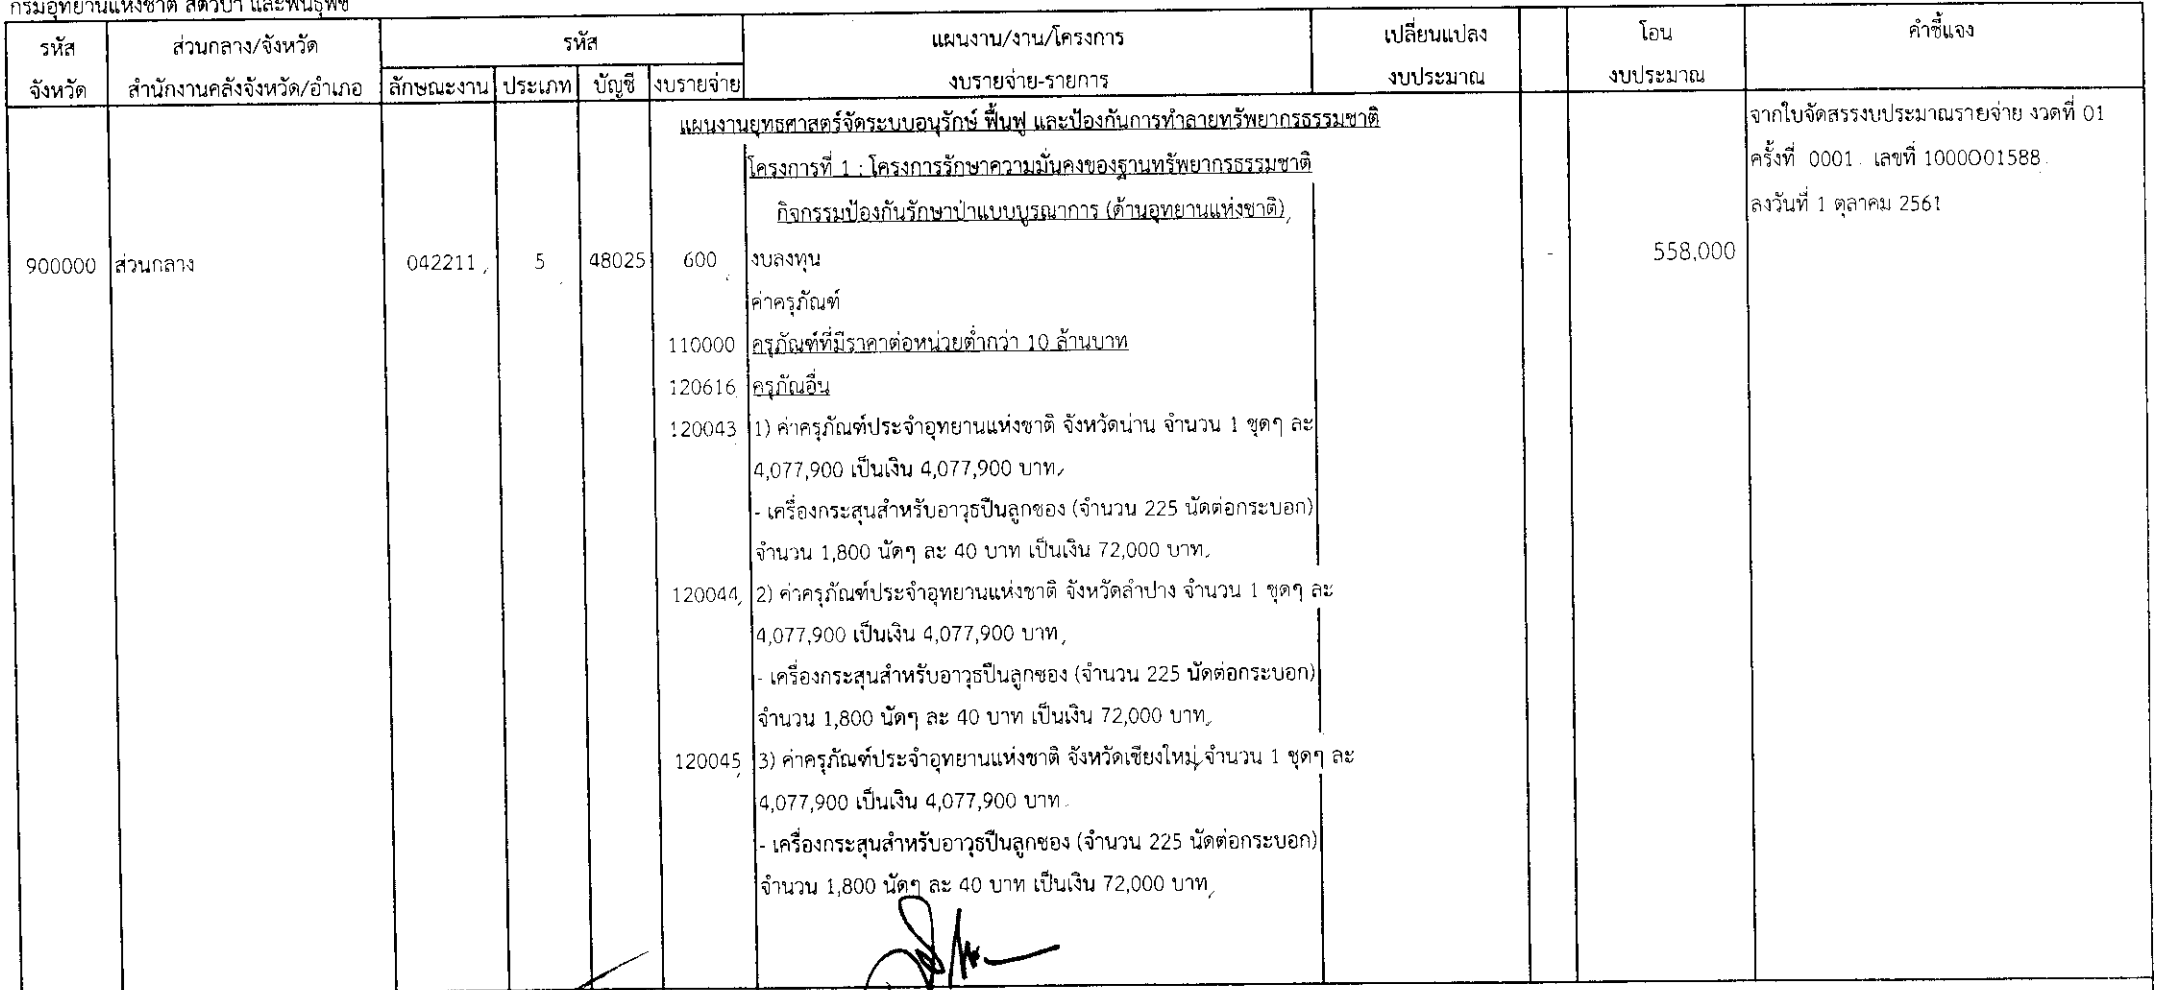 กรมอุทยานแห่งชาติ สัตว์ป่า และพันธุ์พืช
รหัส ส่วนกลาง/จังหวัด รหัส แผนงาน/งาน/โครงการ เปลี่ยนแปลง โอน คำชี้แจง
จังหวัด สำนักงานคลังจังหวัด/อำเภอ ลักษณะงาน ประเภท บัญชี งบรายจ่าย งบรายจ่าย-รายการ งบประมาณ งบประมาณ
แผนงานยุทธศาสตร์จัดระบบอนุรักษ์ ฟื้นฟู และป้องกันการทำลายทรัพยากรธรรมชาติ จากใบจัดสรรงบประมาณรายจ่าย งวดที่ 01
โครงการที่ 1 : โครงการรักษาความมั่นคงของฐานทรัพยากรธรรมชาติ ครั้งที่ 0001 เลขที่ 1000O01588
กิจกรรมป้องกันรักษาป่าแบบบูรณาการ (ด้านอุทยานแห่งชาติ) ลงวันที่ 1 ตุลาคม 2561
900000 ส่วนกลาง 042211 5 48025 600 งบลงทุน - 558,000
ค่าครุภัณฑ์
110000 ครุภัณฑ์ที่มีราคาต่อหน่วยต่ำกว่า 10 ล้านบาท
120616 ครุภัณอื่น
120043 1) ค่าครุภัณฑ์ประจำอุทยานแห่งชาติ จังหวัดน่าน จำนวน 1 ชุดๆ ละ
4,077,900 เป็นเงิน 4,077,900 บาท
- เครื่องกระสุนสำหรับอาวุธปืนลูกซอง (จำนวน 225 นัดต่อกระบอก)
จำนวน 1,800 นัดๆ ละ 40 บาท เป็นเงิน 72,000 บาท
120044 2) ค่าครุภัณฑ์ประจำอุทยานแห่งชาติ จังหวัดลำปาง จำนวน 1 ชุดๆ ละ
4,077,900 เป็นเงิน 4,077,900 บาท
- เครื่องกระสุนสำหรับอาวุธปืนลูกซอง (จำนวน 225 นัดต่อกระบอก)
จำนวน 1,800 นัดๆ ละ 40 บาท เป็นเงิน 72,000 บาท
120045 3) ค่าครุภัณฑ์ประจำอุทยานแห่งชาติ จังหวัดเชียงใหม่ จำนวน 1 ชุดๆ ละ
4,077,900 เป็นเงิน 4,077,900 บาท
- เครื่องกระสุนสำหรับอาวุธปืนลูกซอง (จำนวน 225 นัดต่อกระบอก)
จำนวน 1,800 นัดๆ ละ 40 บาท เป็นเงิน 72,000 บาท